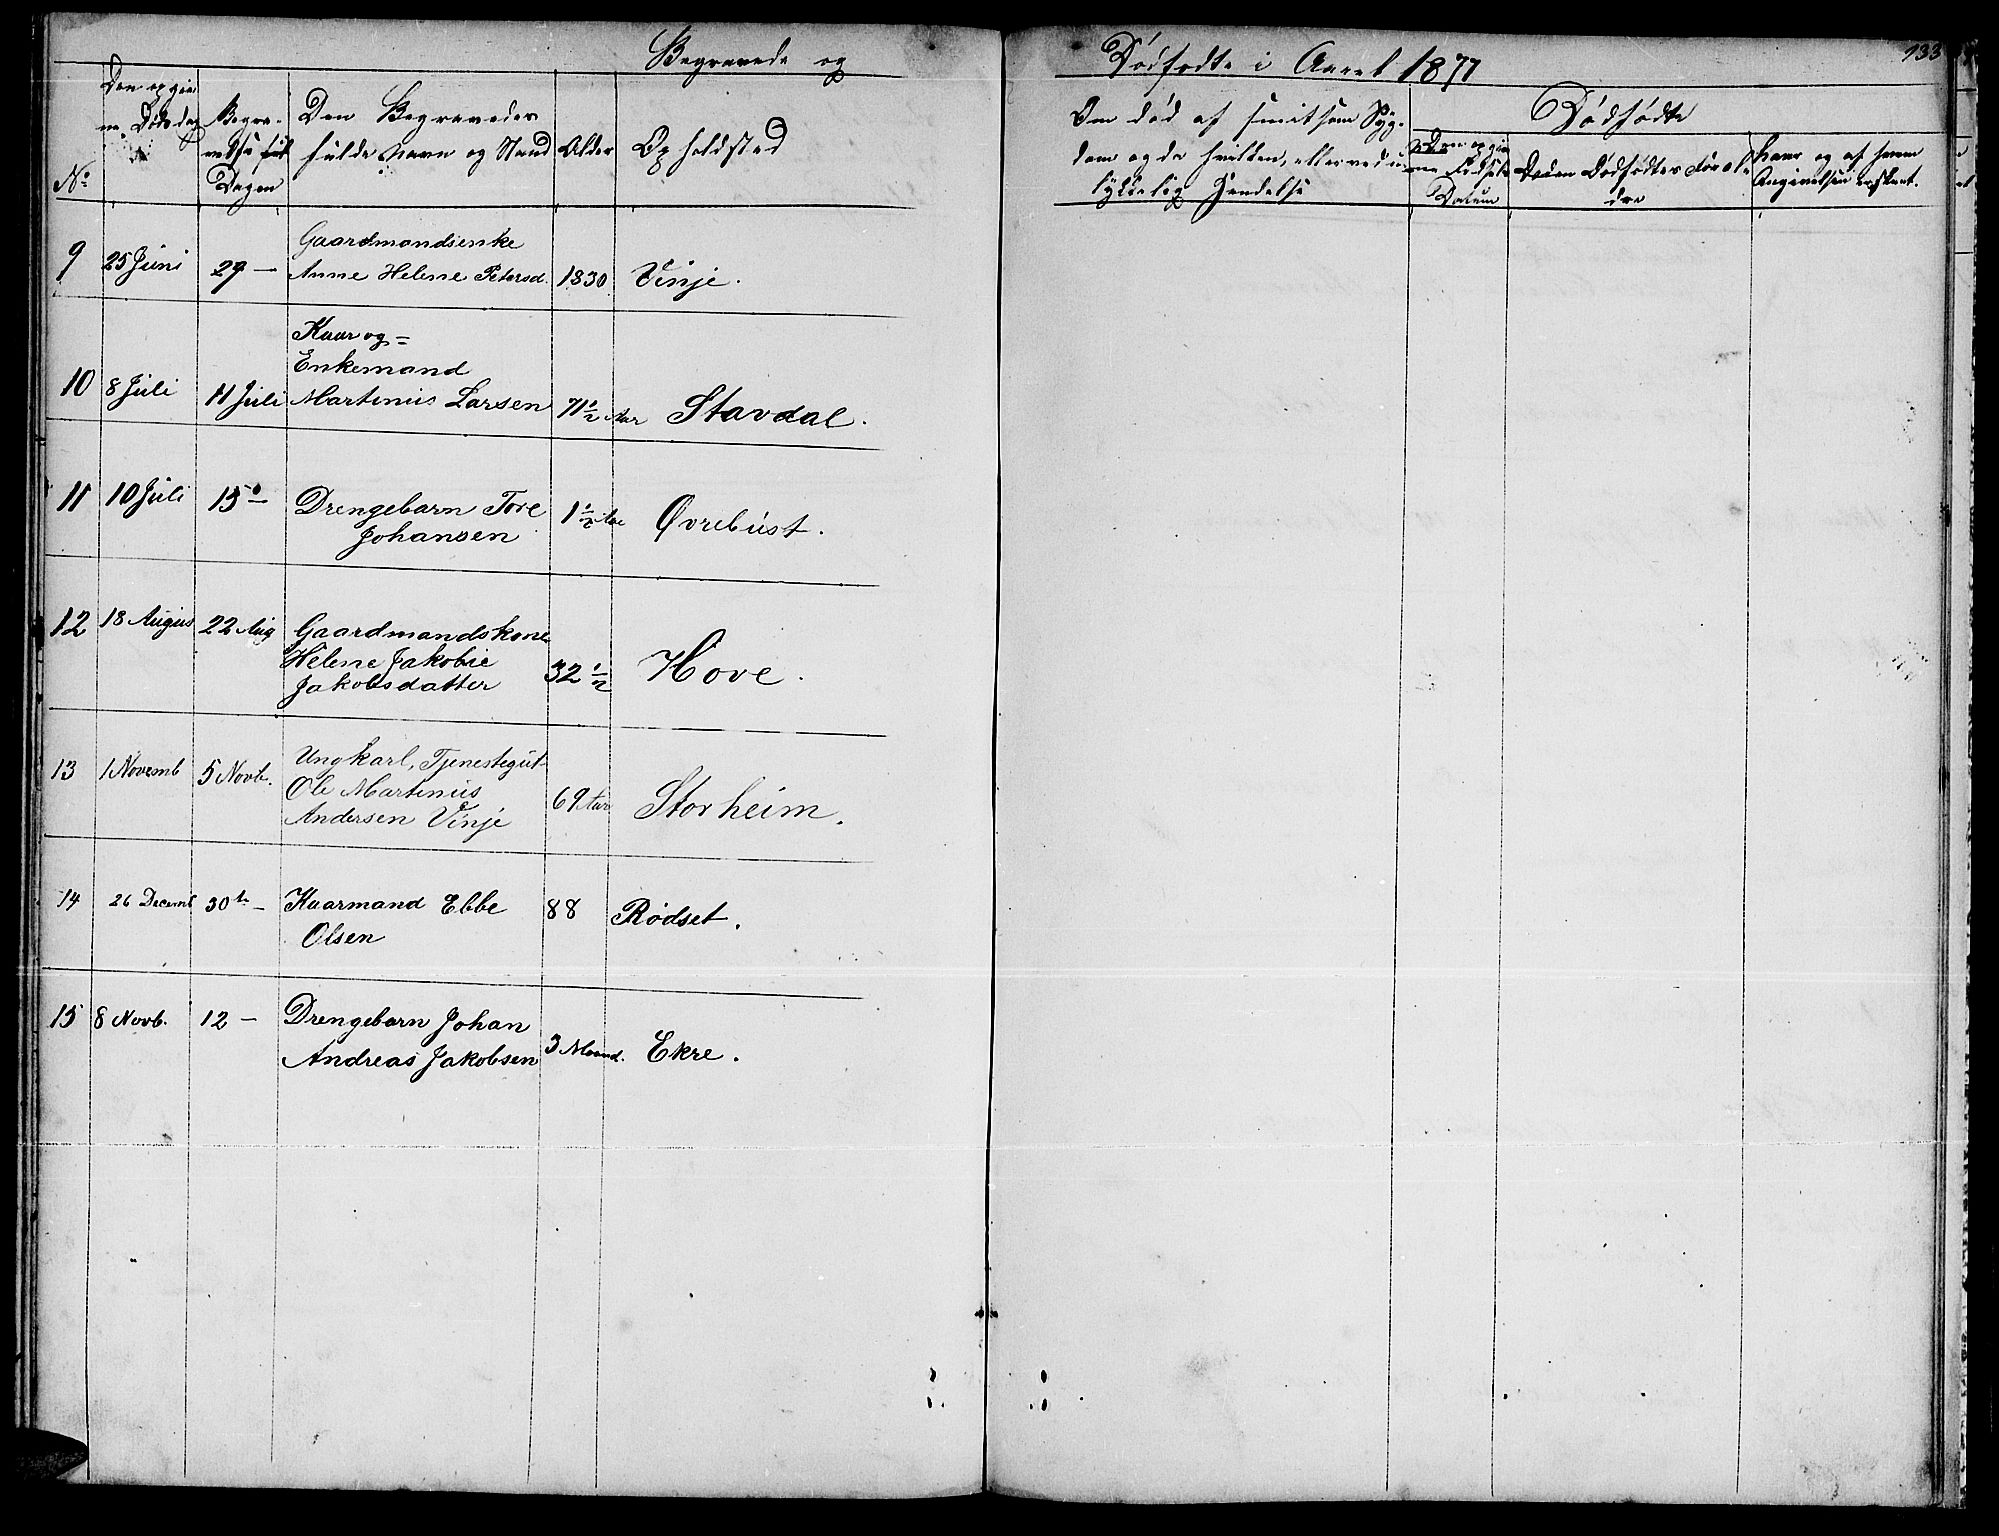 Begravede og
Dødfødte i Aaret 1877
133
No
Den opgiv
ne Dødsdag
Begra-
velse
Dagen
Den Begravedes
fulde Navn og Stand
Alder
Opholdsted
Om død af smitsom Syg-
dom og da hvilken, eller ved u-
lykkelig Hendelse
Dødfødte
Den opgiv
ne Fødsels
Datum
Dødfødtes Foræl-
dre
hvor og af hvem
Angivelsen er skeet.
9 25 Juni 29 — Gaardmandsenke
Anne Helene Petersd. 1830 Vinje.
10 8 Juli 11 Juli Kaar og=
Enkemand
Martinus Larsen 71 1/2 Aar Stavdal.
11 10 Juli 15 — Drengebarn Tore
Johansen 1 1/2 Aar Øvrebust.
12 18 Augus 22 Aug Gaardmandskone
Helene Jakobie
Jakobsdatter 32 1/2 Hove.
13 1 Novemb 5 Novb. Ungkarl, Tjenestegut
Ole Martinus
Andersen Vinje 69 Aar Storheim.
14 26 Decemb 30te — Kaarmand Ebbe
Olsen 88 Rødset.
15 8 Novb. 12 — Drengebarn Johan
Andreas Jakobsen 3 Maand. Ekre.